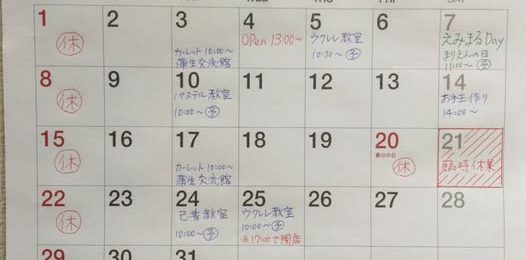 1 2 3 4 5 6 7
休
カーレット 10:00〜
蒲生交流館
OPen 13:00〜
ウクレレ教室
10:30〜 予
えみまるDay
まりえんの日
11:00〜 予
8 9 10 11 12 13 14
休
パステル教室
10:00〜 予
お手玉作り
14:00〜
15 16 17 18 19 20 21
休
カーレット 10:00〜
蒲生交流館
春分の日
休
臨時休業
22 23 24 25 26 27 28
休
己書教室
10:00〜 予
ウクレレ教室
10:00〜 予
※17:00で閉店
29 30 31